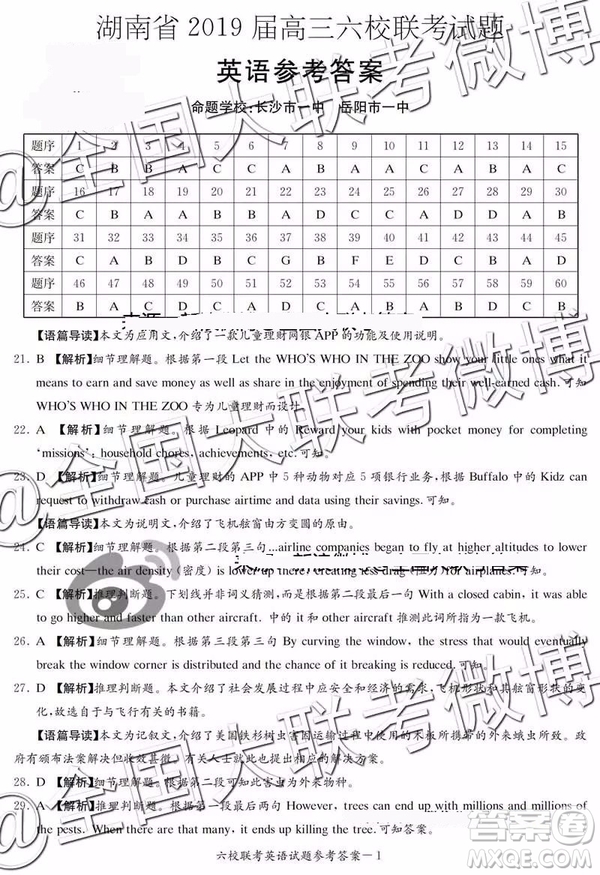 湖南省 2019 届高三六校联考试题
英语参考答案
命题学校:长沙市一中 岳阳市一中
题序 1 2 3 4 5 6 7 8 9 10 11 12 13 14 15
答案 C B A C A B A C A B
题序 16 17 18 19 20 21 22 23 24 25 26 27 28 29 30
答案 C B A A B A D C C A D A
题序 31 32 33 34 35 36 37 38 39 40 41 42 43 44 45
答案 C A B D B C G B F E D C B A
题序 46 47 48 49 50 51 52 53 54 55 56 57 58 59 60
答案 C B A D C D C A B D
【语篇导读】本文为应用文,介绍了一款儿童理财网银 APP 的功能及使用说明。
21. B 【解析】细节理解题。根据第一段 Let the WHO'S WHO IN THE ZOO show your little ones what it
means to earn and save money as well as share in the enjoyment of spending their well-earned cash. 可知
WHO'S WHO IN THE ZOO 专为儿童理财而设计。
22. A 【解析】细节理解题。根据 Leopard 中的 Reward your kids with pocket money for completing
'missions': household chores, achievements, etc. 可知。
23. D 【解析】细节理解题。儿童理财的 APP 中 5 种动物对应 5 项银行业务。根据 Buffalo 中的 Kidz can
request to withdraw cash or purchase airtime and data using their savings. 可知。
【语篇导读】本文为说明文,介绍了飞机舷窗由方变圆的原由。
24. C 【解析】细节理解题。根据第二段第三句...airline companies began to fly at higher altitudes to lower
their cost—the air density (密度) is lower up there, creating less drag for airplanes. 可知。
25. B 【解析】推理判断题。下划线并非词义猜测,而是根据第二段最后一句 With a closed cabin, it was able
to go higher and faster than other aircraft. 中的 it 和 other aircraft 推测此词所指为一款飞机。
26. A 【解析】细节理解题。根据第三段第三句 By curving the window, the stress that would eventually
break the window corner is distributed and the chance of it breaking is reduced. 可知。
27. D 【解析】推理判断题。本文介绍了社会发展过程中应安全和经济的需求,飞机形状及其舷窗形状的变
化,有可能来自于有关飞行的书籍。
【语篇导读】本文为记叙文,介绍了美国铁杉树虫害因运输过程中使用的木托板所携带的外来蛾虫所致。政
府颁布法案解决但收效甚微,有关人士就此进行深入探讨,并积极寻求解决方案。
28. D 【解析】细节理解题。根据第二段可知此害虫为外来物种。
29. A 【解析】推理判断题。根据第二段最后两句 However, trees can end up with millions and millions of
the pests. When that many want in, it ends up killing the tree. 可知答案。
六校联考英语试题参考答案-1
@全国大联考微博
@全国大联考微博
@全国大联考微博